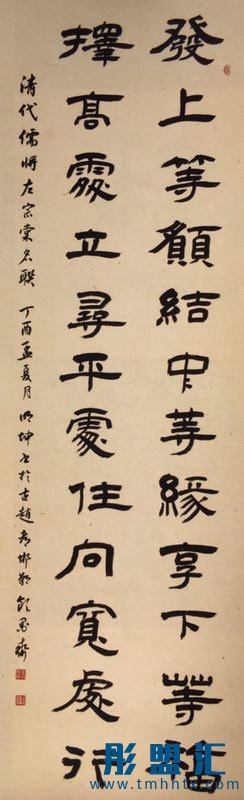 發上等願結中等緣享下等福
擇高處立尋平處住向寬處行
清代儒將左宗棠名聯 丁酉孟夏月 明坤书於古趙都邯鄲 墨齋
彤盟汇